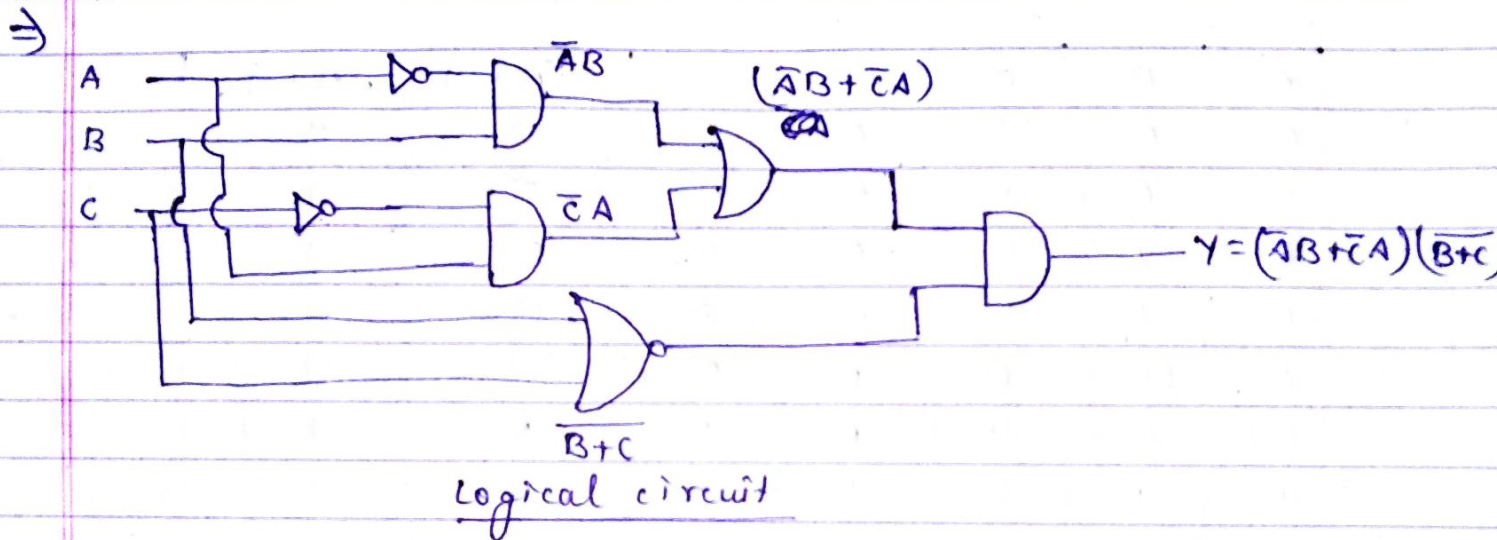 ⇒
A
B
C
A̅B
C̅A
(A̅B+C̅A)
B̅+̅C̅
Y=(A̅B+C̅A)(B̅+̅C̅)
Logical circuit